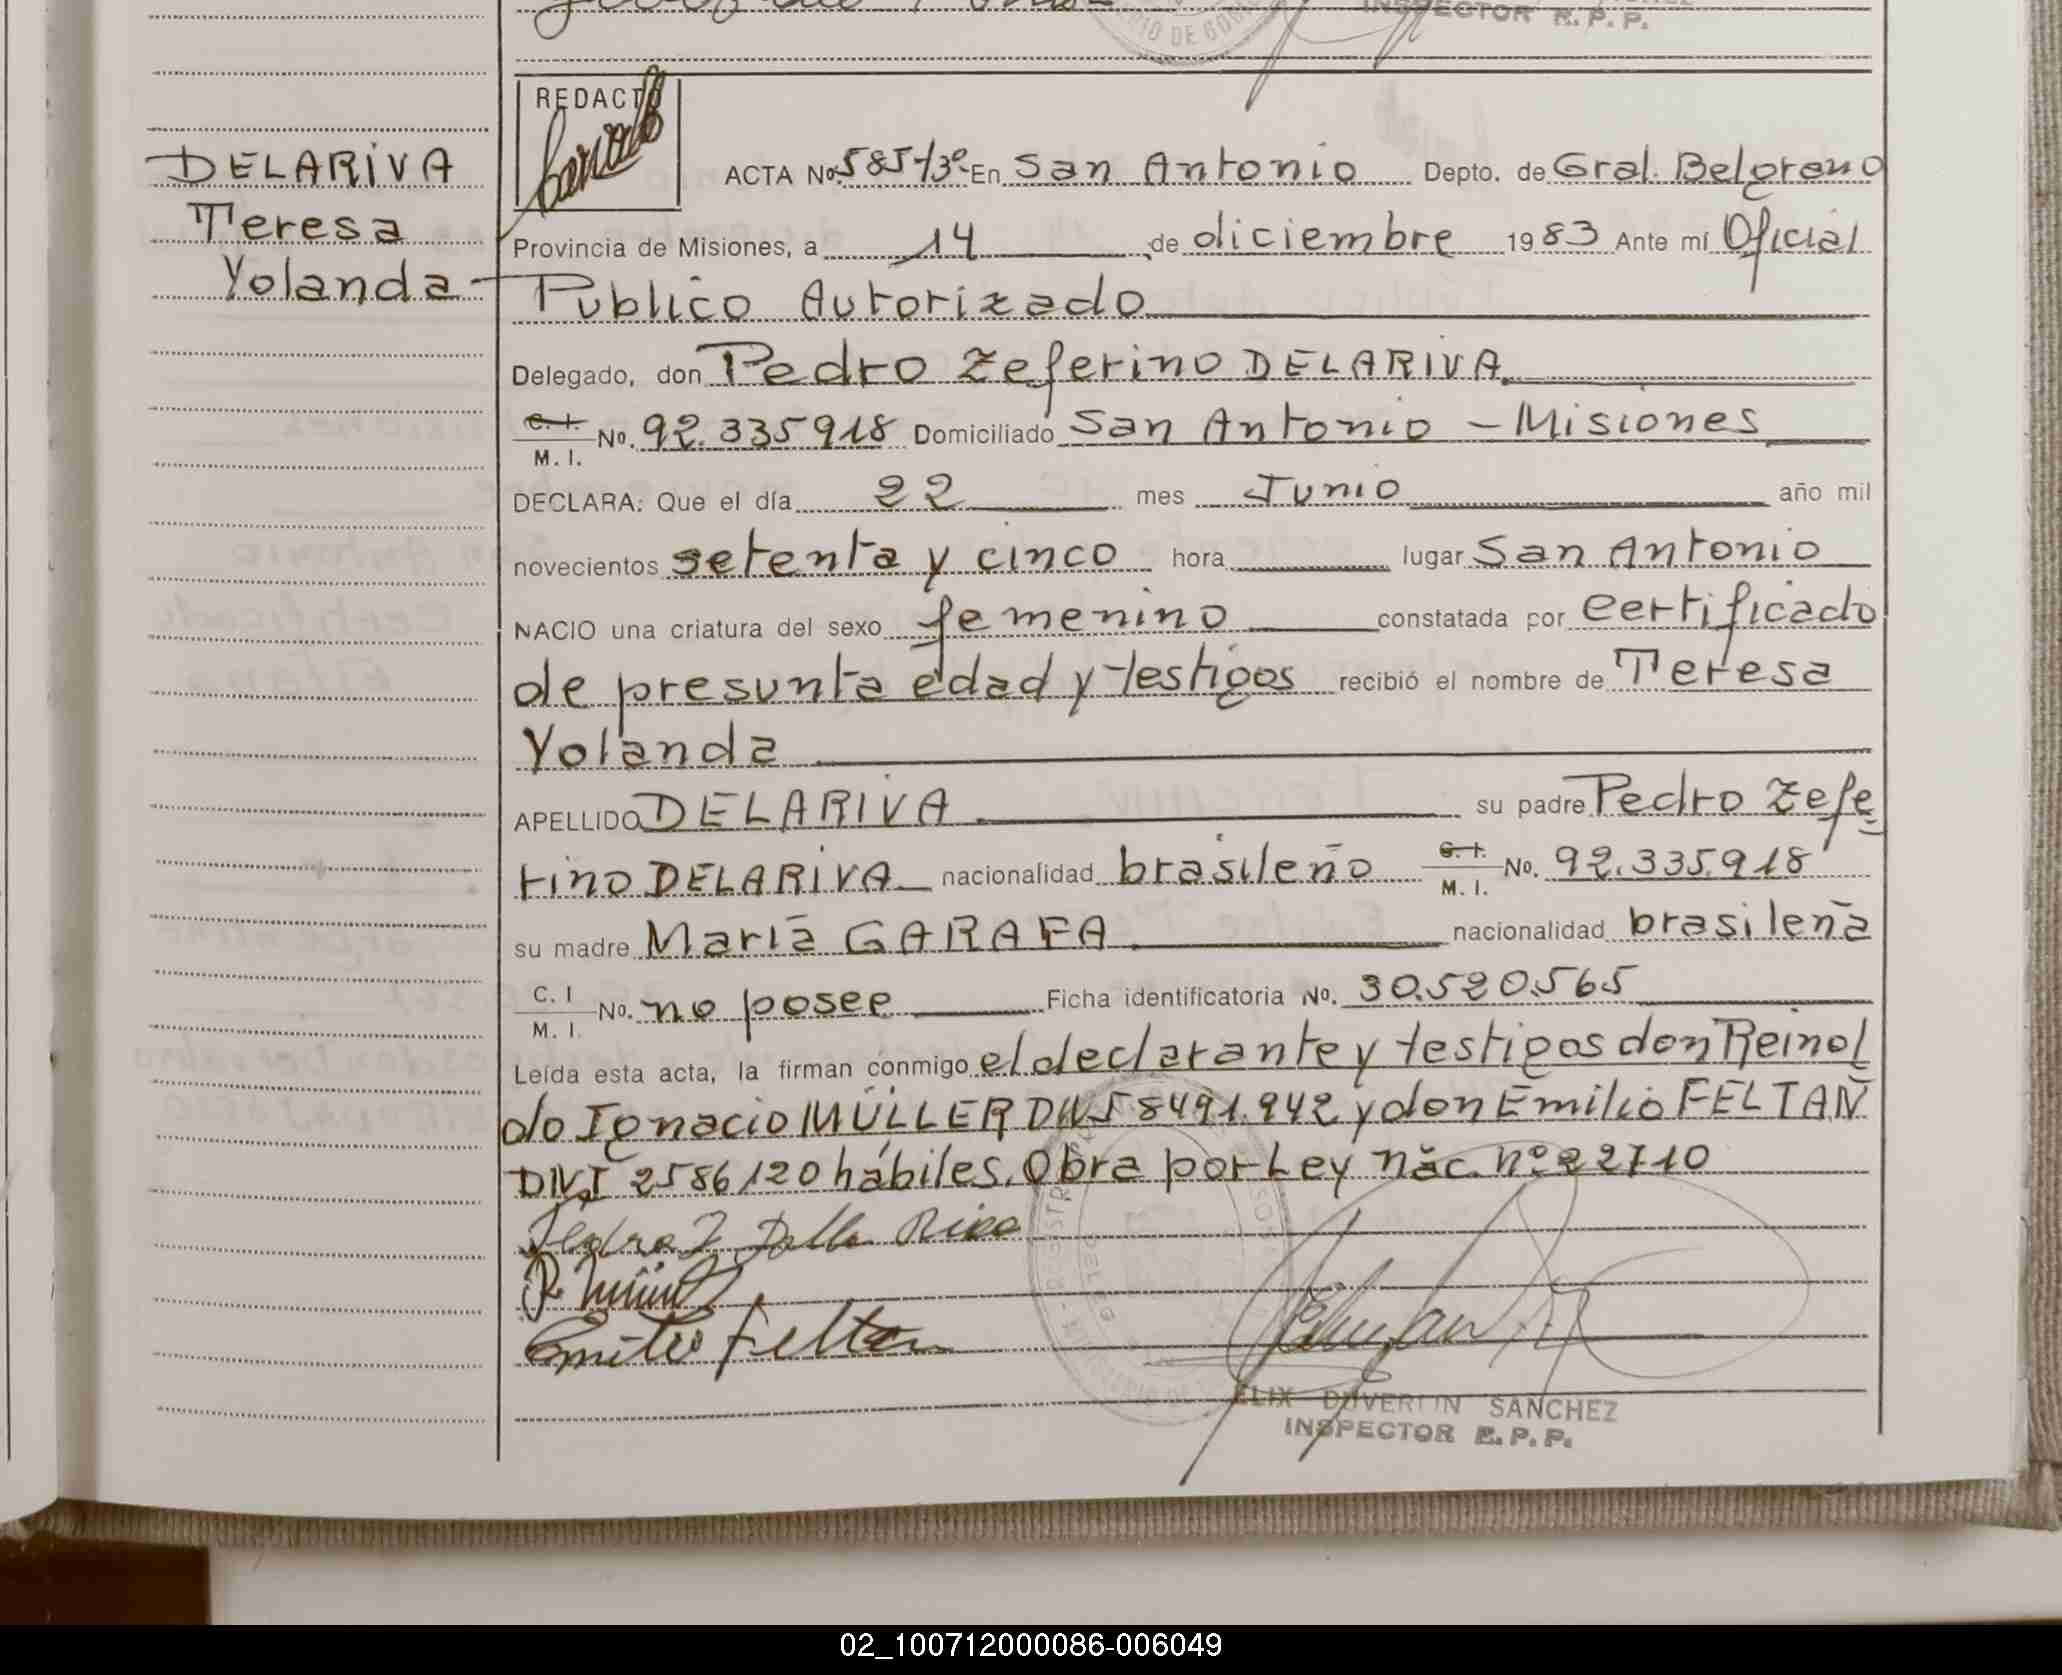 INSPECTOR R. P. P.
REDACTO
DELARIVA
Teresa
Yolanda
ACTA No. 585-T3º- En San Antonio Depto. de Gral. Belgrano
Provincia de Misiones, a 14 de diciembre 1983 Ante mí Oficial
Publico Autorizado
Delegado, don Pedro Zeferino DELARIVA.
C. I.
M. I. No. 92.335918 Domiciliado San Antonio - Misiones
DECLARA: Que el día 22 mes Junio año mil
novecientos setenta y cinco hora lugar San Antonio
NACIO una criatura del sexo femenino constatada por certificado
de presunta edad y testigos recibió el nombre de Teresa
Yolanda
APELLIDO DELARIVA su padre Pedro Zefe
rino DELARIVA nacionalidad brasileño C. I. M. I. No. 92.335.918
su madre María GARAFA nacionalidad brasileña
C. I
M. I. No. no posee Ficha identificatoria No. 30.520.565
Leída esta acta, la firman conmigo el declarante y testigos don Reinol
do Ignacio MÜLLER DNI 8491.942 y don Emilio FELTAN
DNI 2586120 hábiles. Obra por Ley Nac. nº 22710
Pedro Z Dalla Riva
Emilio Feltan
ELIX DUVERLIN SANCHEZ
INSPECTOR R. P. P.
02_100712000086-006049